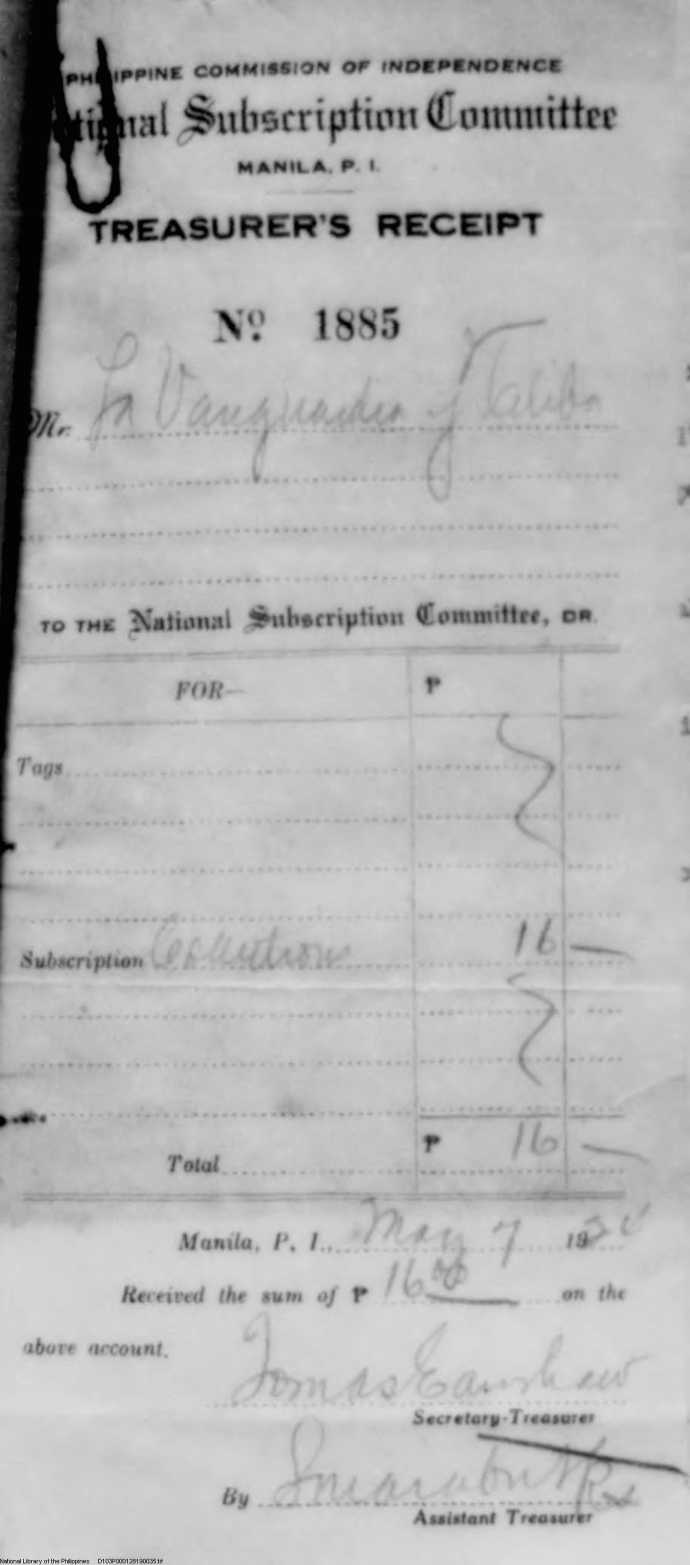 PHILIPPINE COMMISSION OF INDEPENDENCE
National Subscription Committee
MANILA, P. I.
TREASURER'S RECEIPT
Nº 1885
Mr. La Vanguardia y Taliba
TO THE National Subscription Committee, DR.
FOR— ₱
Tags
Subscription Collections 16 —
Total ₱ 16 —
Manila, P. I., May 7 192
Received the sum of ₱ 16 00 on the
above account.
Tomas Earnshaw
Secretary-Treasurer
By
Assistant Treasurer
National Library of the Philippines